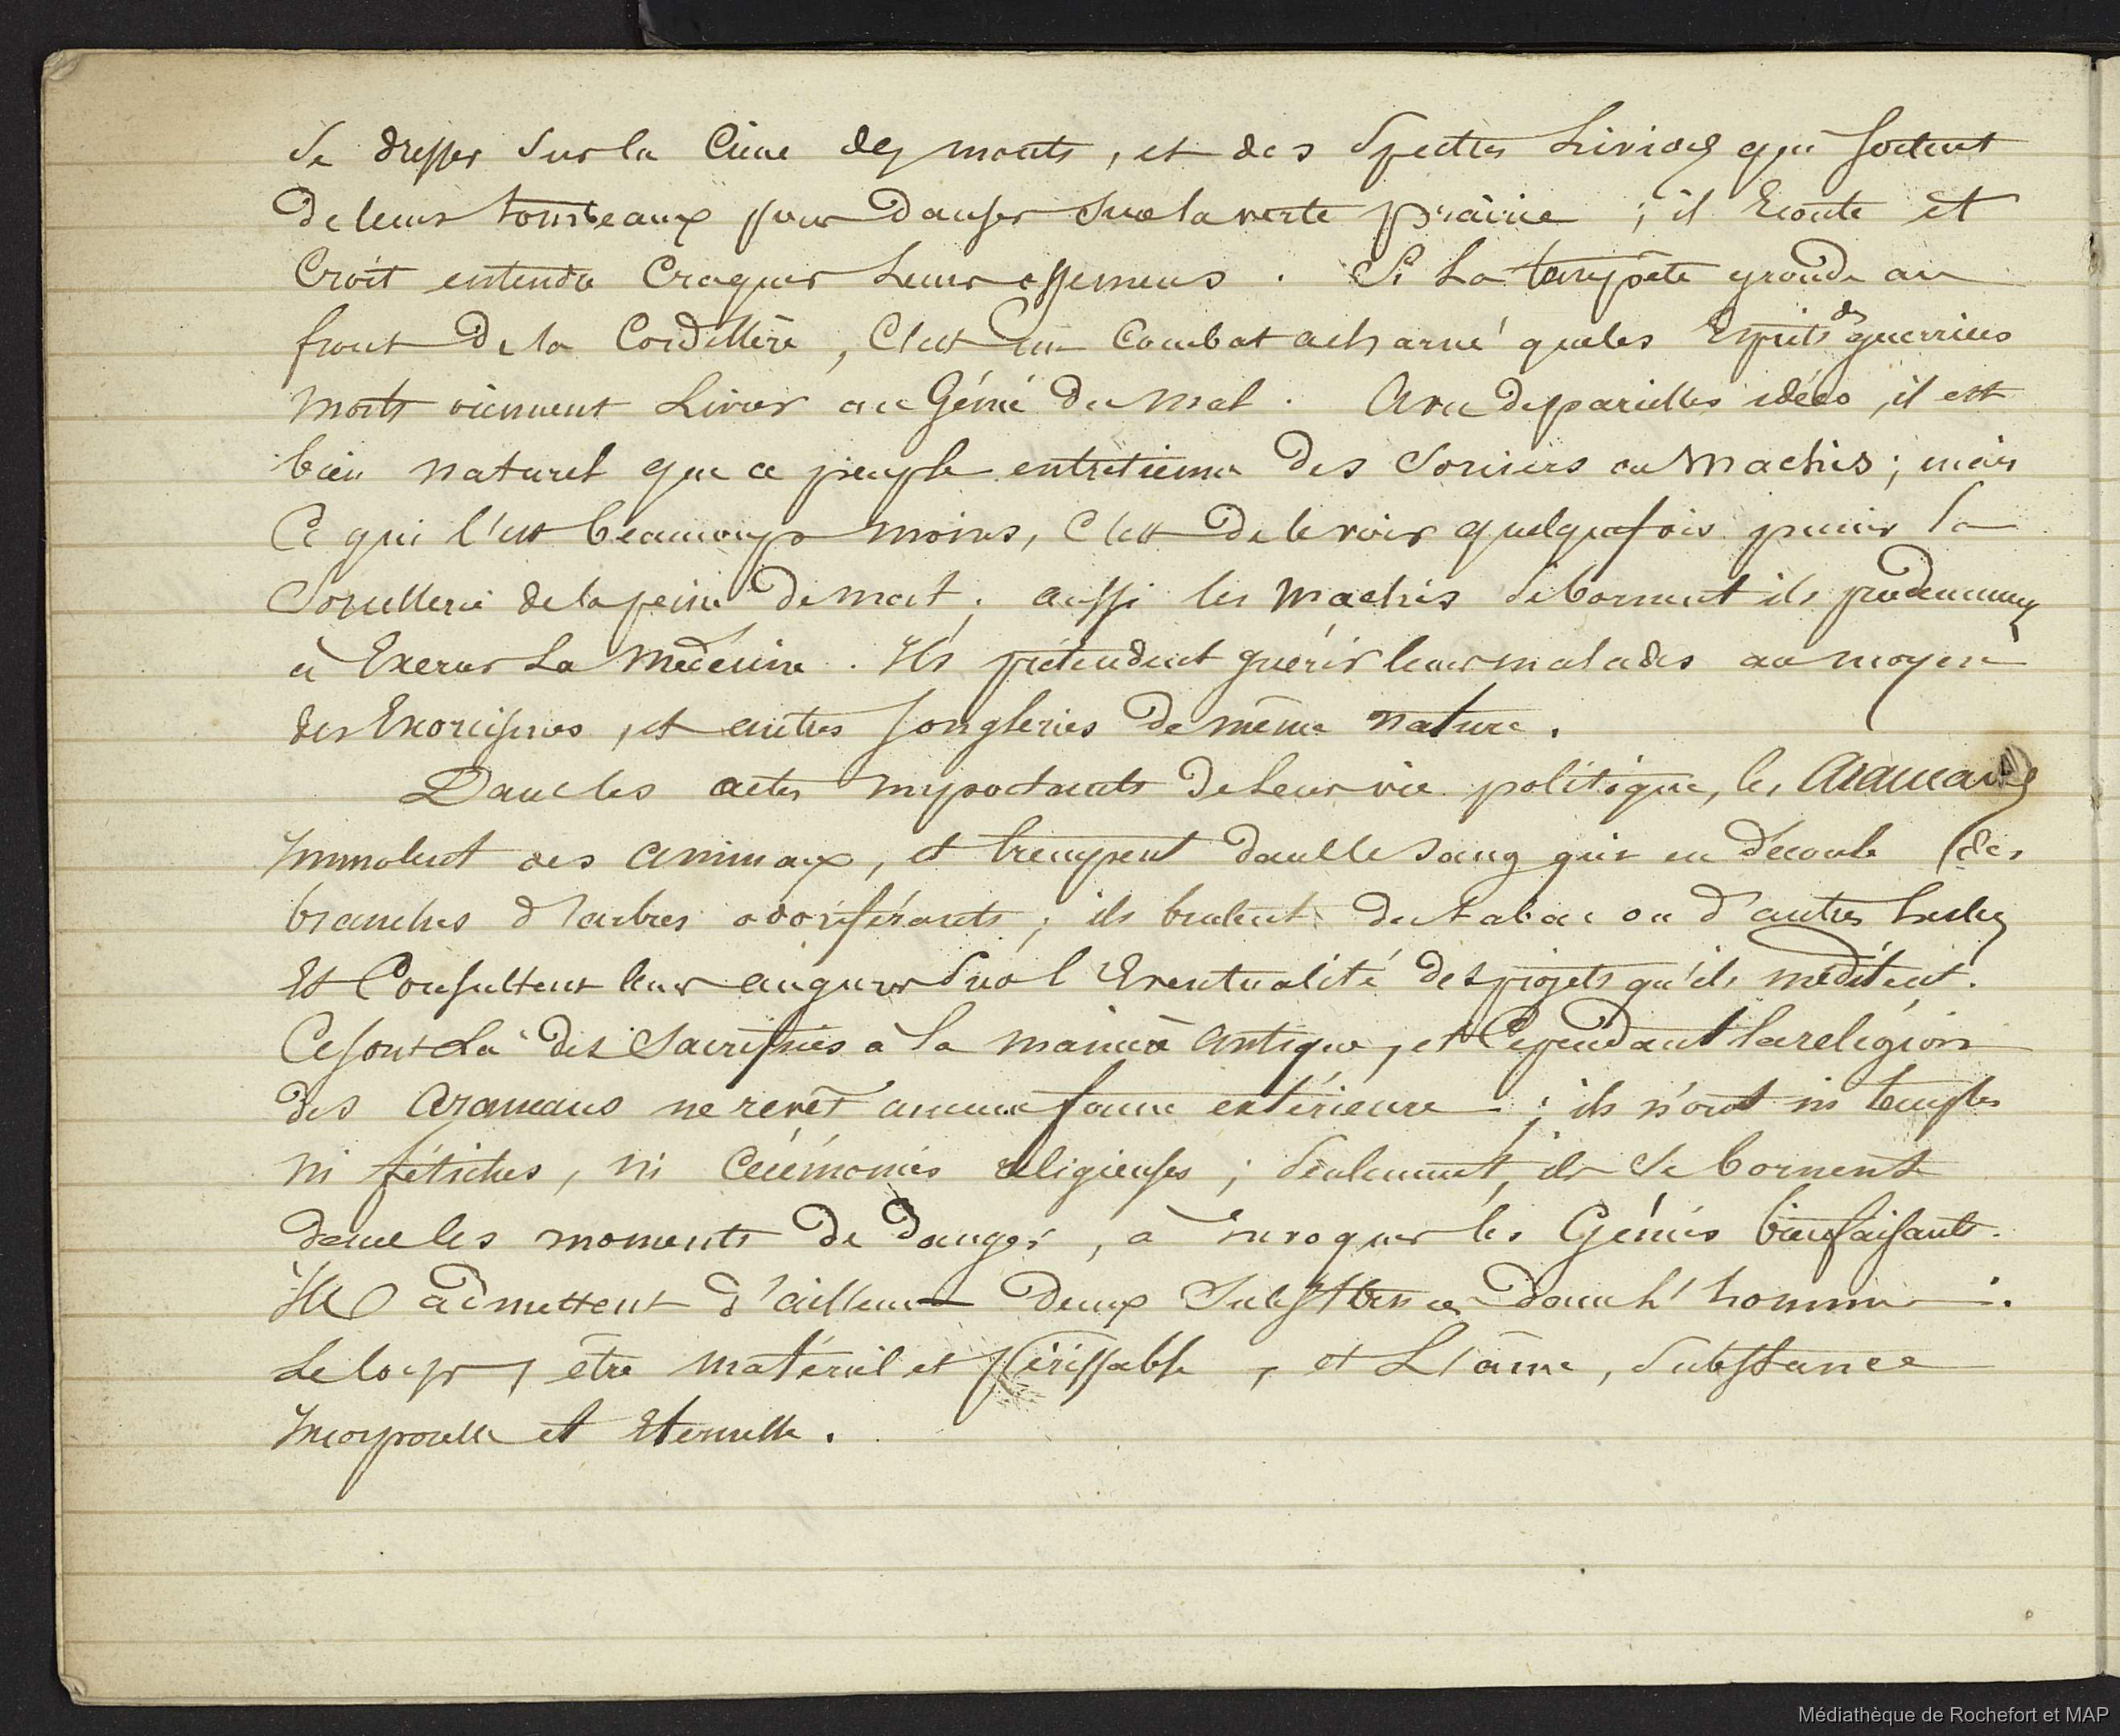 Se dresser Sur la Cime des monts, et des Spectres Livides qui Sortent
De leurs tombeaux pour Danser Sur la verte prairie ; il Ecoute et
Croit entendre Craquer Leurs ossemens . Si La tempête gronde au
front De la Cordillère, C'est un Combat acharné que les Esprits des guerriers
Morts viennent Livrer au Génie Du Mal . Avec de pareilles idées, il est
bien naturel que ce peuple entretienne Des Sorciers ou Machis ; mais
Ce qui l'est beaucoup moins, C'est De le voir quelquefois punir la
Sorcellerie de la peine De mort ; aussi les Machis Se bornent ils prudemment
à Exercer La Médecine . Ils prétendent guérir leurs malades au moyen
des Exorcismes, et autres Jongleries De même nature .
Dans les actes Importants De Leur vie politique, les Araucans
Immolent des animaux, et trempent dans le Sang qui en Découle des
branches d'arbres odoriférants ; ils brulent du tabac ou d'autres herbes
Et Consultent leurs augures Sur l'Eventualité des projets qu'ils méditent .
Ce Sont La Des Sacrifices à la manière antique, et Cependant la religion
des Araucans ne revêt aucune forme extérieure ; ils n'ont ni temples
ni fétiches, ni Cérémonies religieuses ; Seulement, ils Se bornent
dans les moments De Danger, à Invoquer les Génies bienfaisants .
Ils admettent d'ailleurs Deux Substances Dans L'homme .
Le Corps, être matériel et Périssable, et L'âme, Substance
Incorporelle et Eternelle .
Médiathèque de Rochefort et MAP